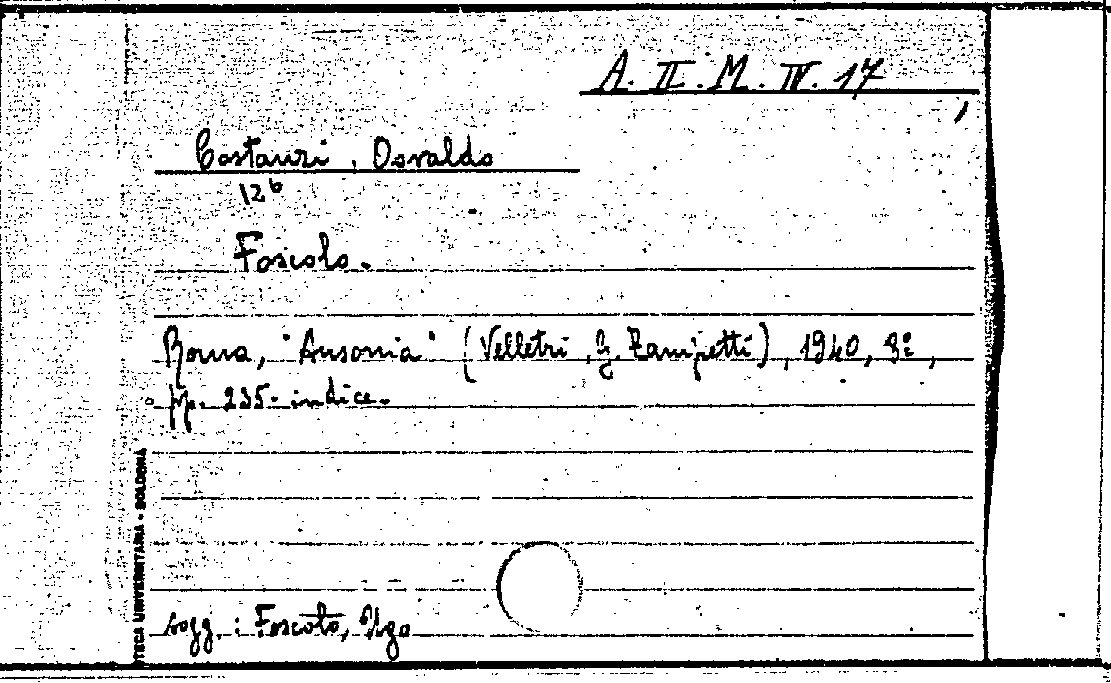 A. II. M. IV. 17
Costauri, Osvaldo
12 b
Foscolo.
Roma, "Ausonia" (Velletri, G. Zampetti), 1940, 8º,
pp. 235. indice.
sogg.: Foscolo, Ugo
TECA UNIVERSITARIA - BOLOGNA